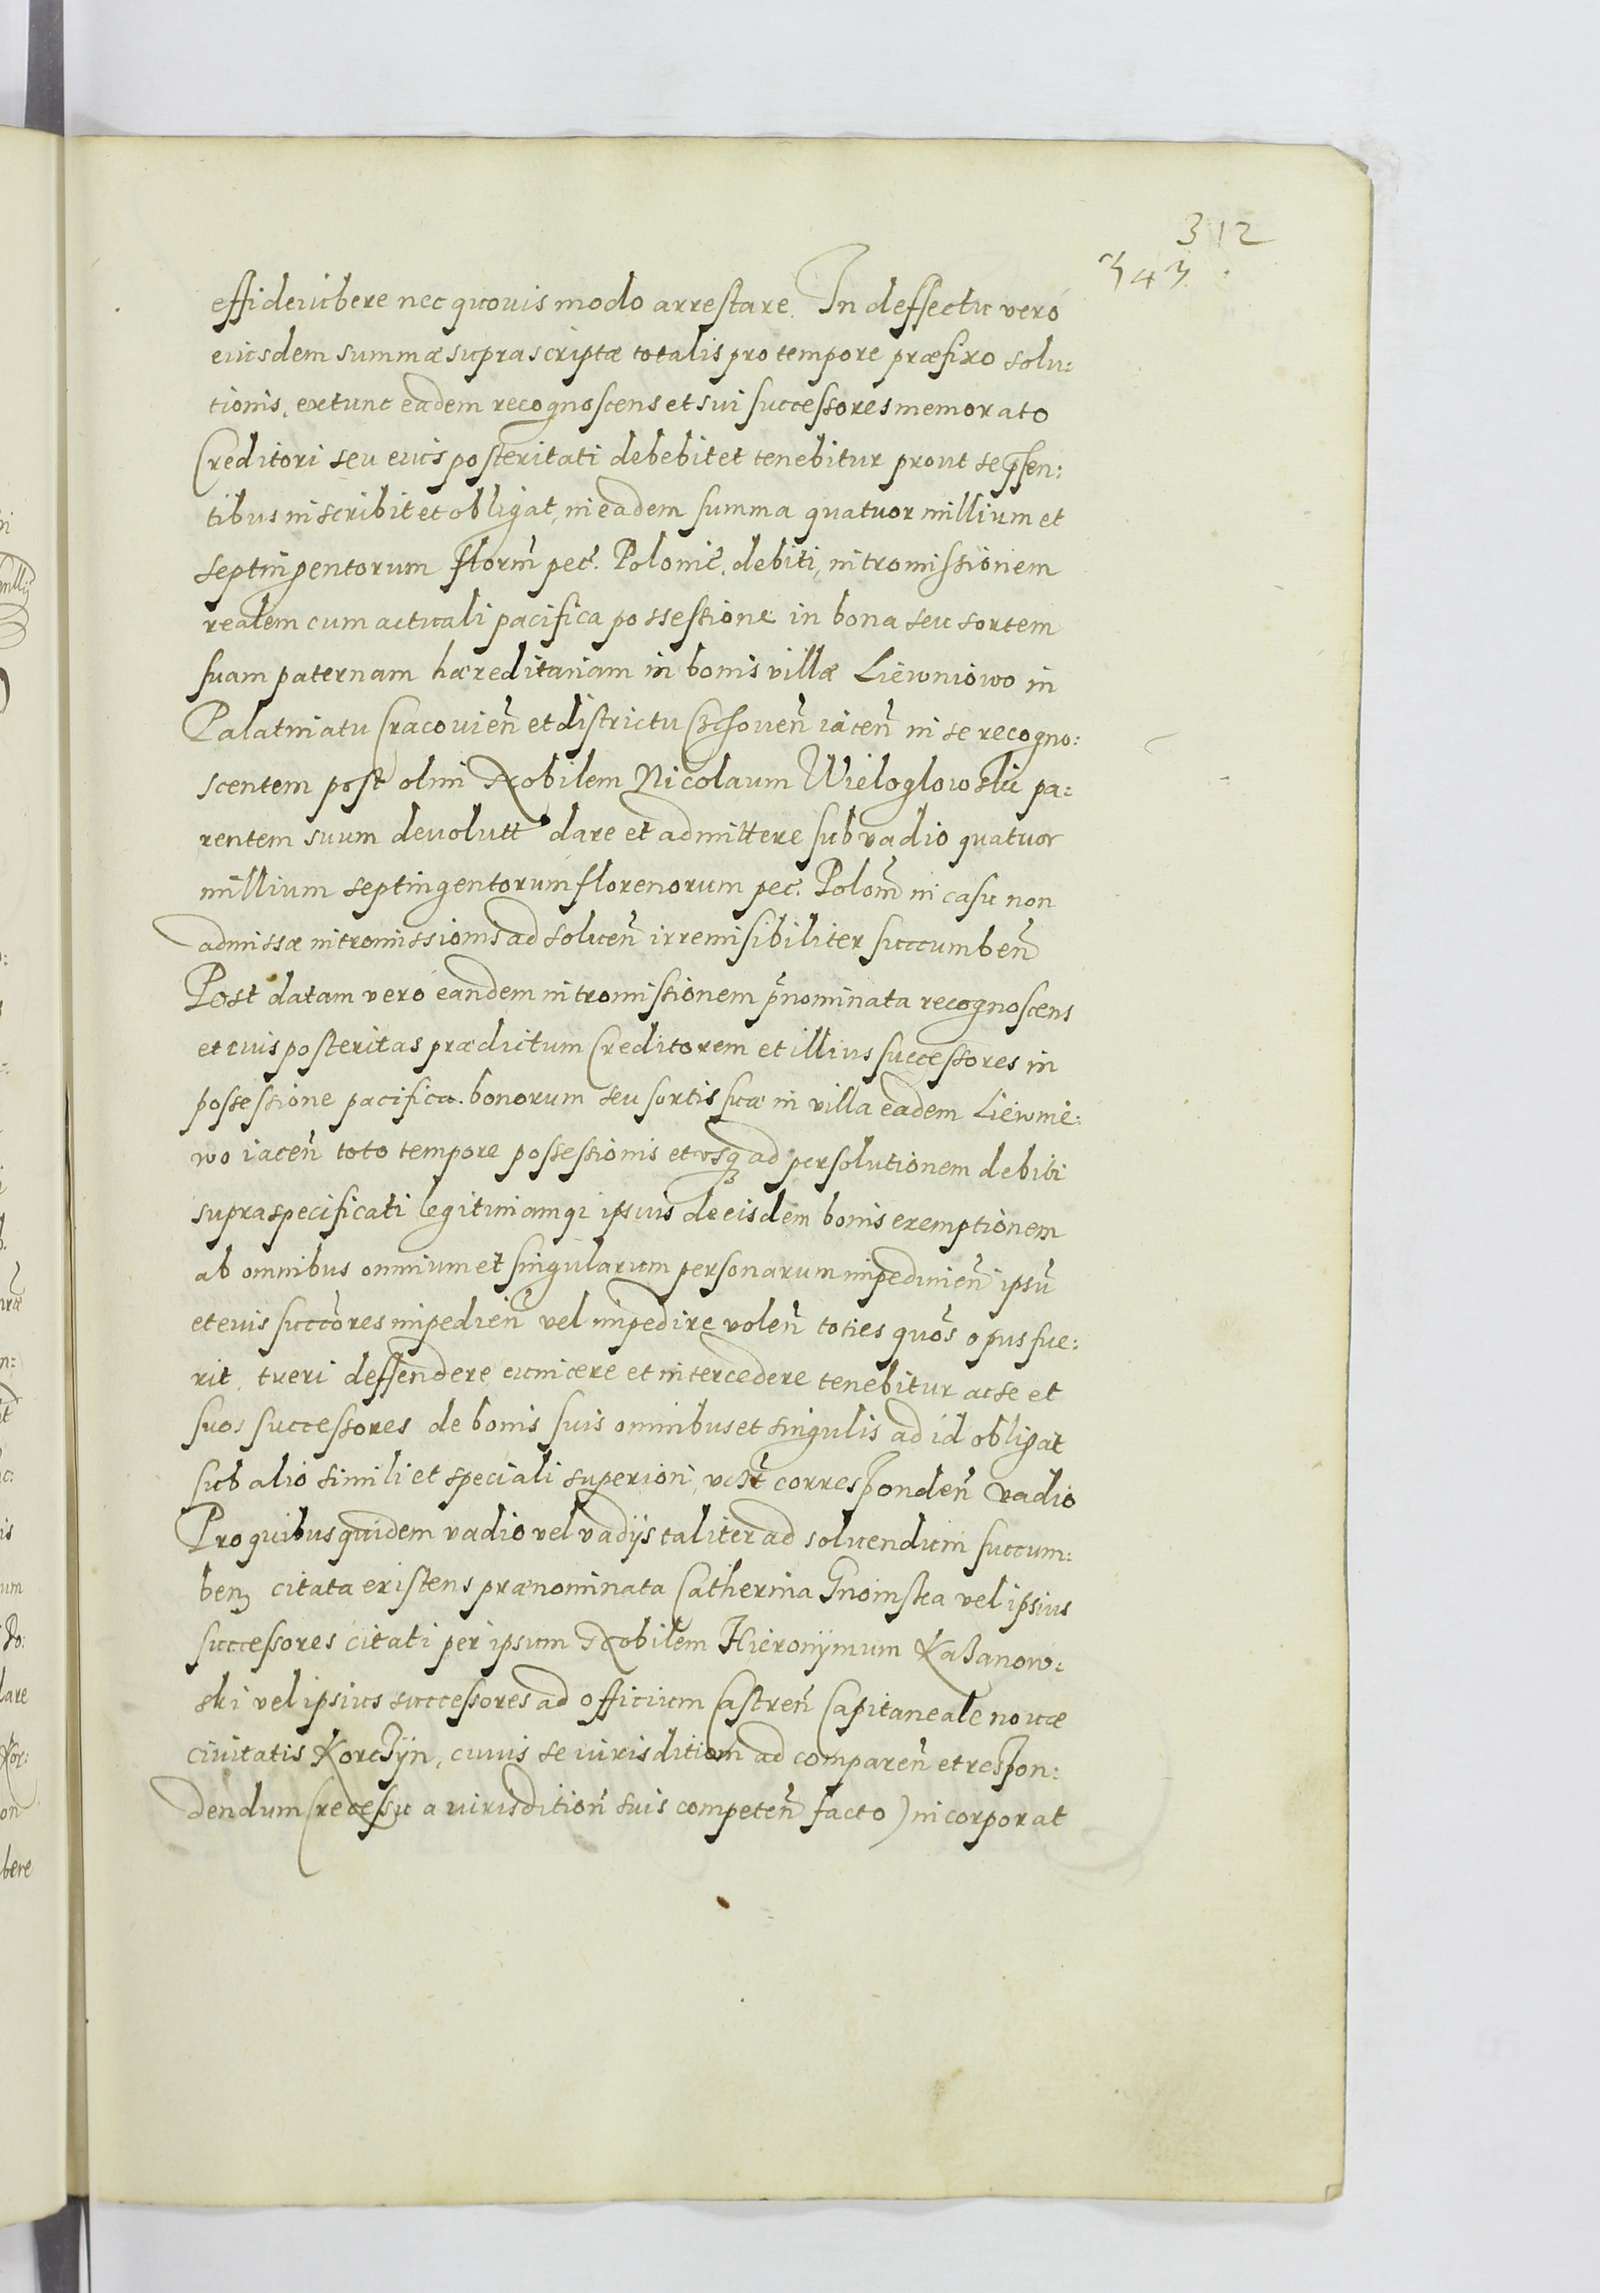 312
343
effi deuibere nec quouis modo arrestare. In deffectu vero
eiusdem summæ suprascriptæ totalis pro tempore præfixo solu:
tionis, extunc eadem recognoscens et sui successores memorato
Creditori seu eius posteritati debebit et tenebitur prout se p̃sen:
tibus inscribit et obligat, in eadem summa quatuor millium et
septingentorum florm̃ pec̃. Polonic̃. debiti, intromissionem
realem cum actuali pacifica possessione in bona seu sortem
suam paternam hæreditariam in bonis villæ Liewniowo in
Palatinatu Cracouien̄ et districtu Czchouen̄ iacen̄ in se recogno:
scentem post olim Nobilem Nicolaum Wieloglowski pa:
rentem suum devolutt dare et admittere sub vadio quatuor
millium septingentorum florenorum pec̃. Polom̃ in casu non
admissæ intromissionis ad soluen̄ irremisibiliter succumben̄
Post datam vero eandem intromissionem p̃nominata recognoscens
et eius posteritas prædictum Creditorem et illius successores in
possessione pacifica bonorum seu sortis suæ in villa eadem Liewnie:
wo iacen̄ toto tempore possessionis et usq3 ad persolutionem debiti
supraspecificati legitimamq3 ipsius de eisdem bonis exemptionem
ab omnibus omnium et singularum personarum impedimen̄ ipsū
et eius succōres impedien̄ vel impedire volen̄ toties quōs opus fue:
rit, tueri deffendere euincere et intercedere tenebitur ac se et
suos successores de bonis suis omnibus et singulis ad id obligat
sub alio simili et speciali superiori, corresponden̄ vadio
Pro quibus quidem vadio vel vadijs taliter ad soluendum succum:
ben3 citata existens prænominata Catherina Gnoinska vel ipsius
successores citati per ipsum Nobilem Hieronijmum Kazanow:
ski vel ipsius successores ad officium Castren̄ Capitaneale nouæ
ciuitatis Korczijn, cuius se iurisditioni ad comparen̄ et respon:
dendum (recessu a iurisdition̄ suis competen̄ facto) incorporat